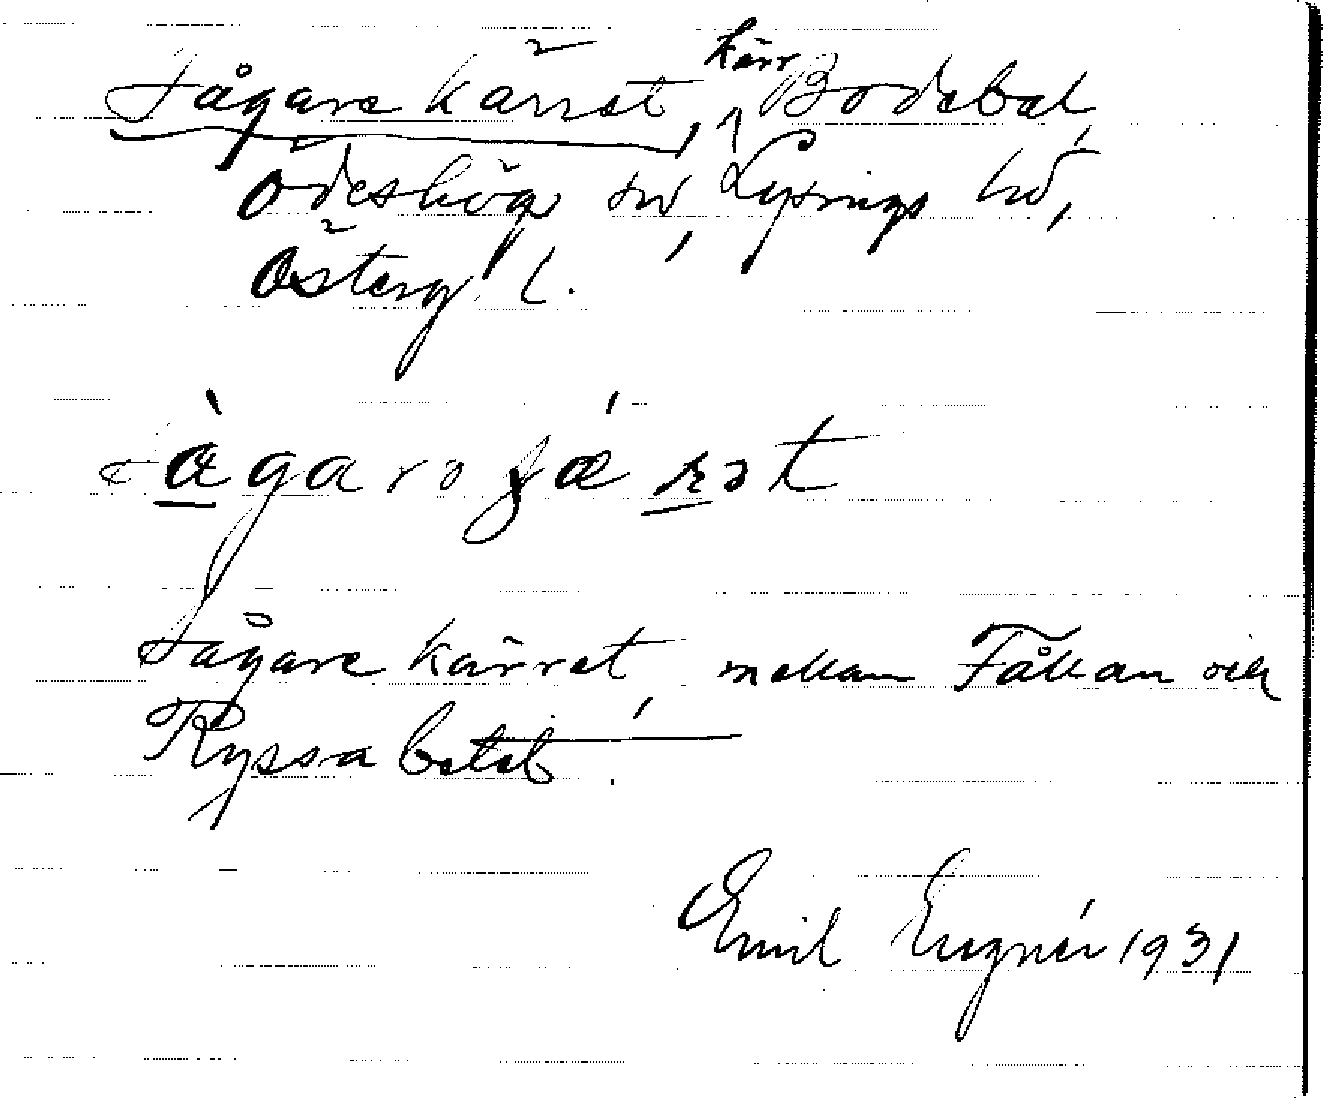 Tågarekärret, kärr, Bodebol,
Ödeshög sn, Lysings hd,
Österg. l.
tàgarəjǽrət
Tågarekärret, mellan Fållan och
Ryssabetet.
Emil Eugnér 1931